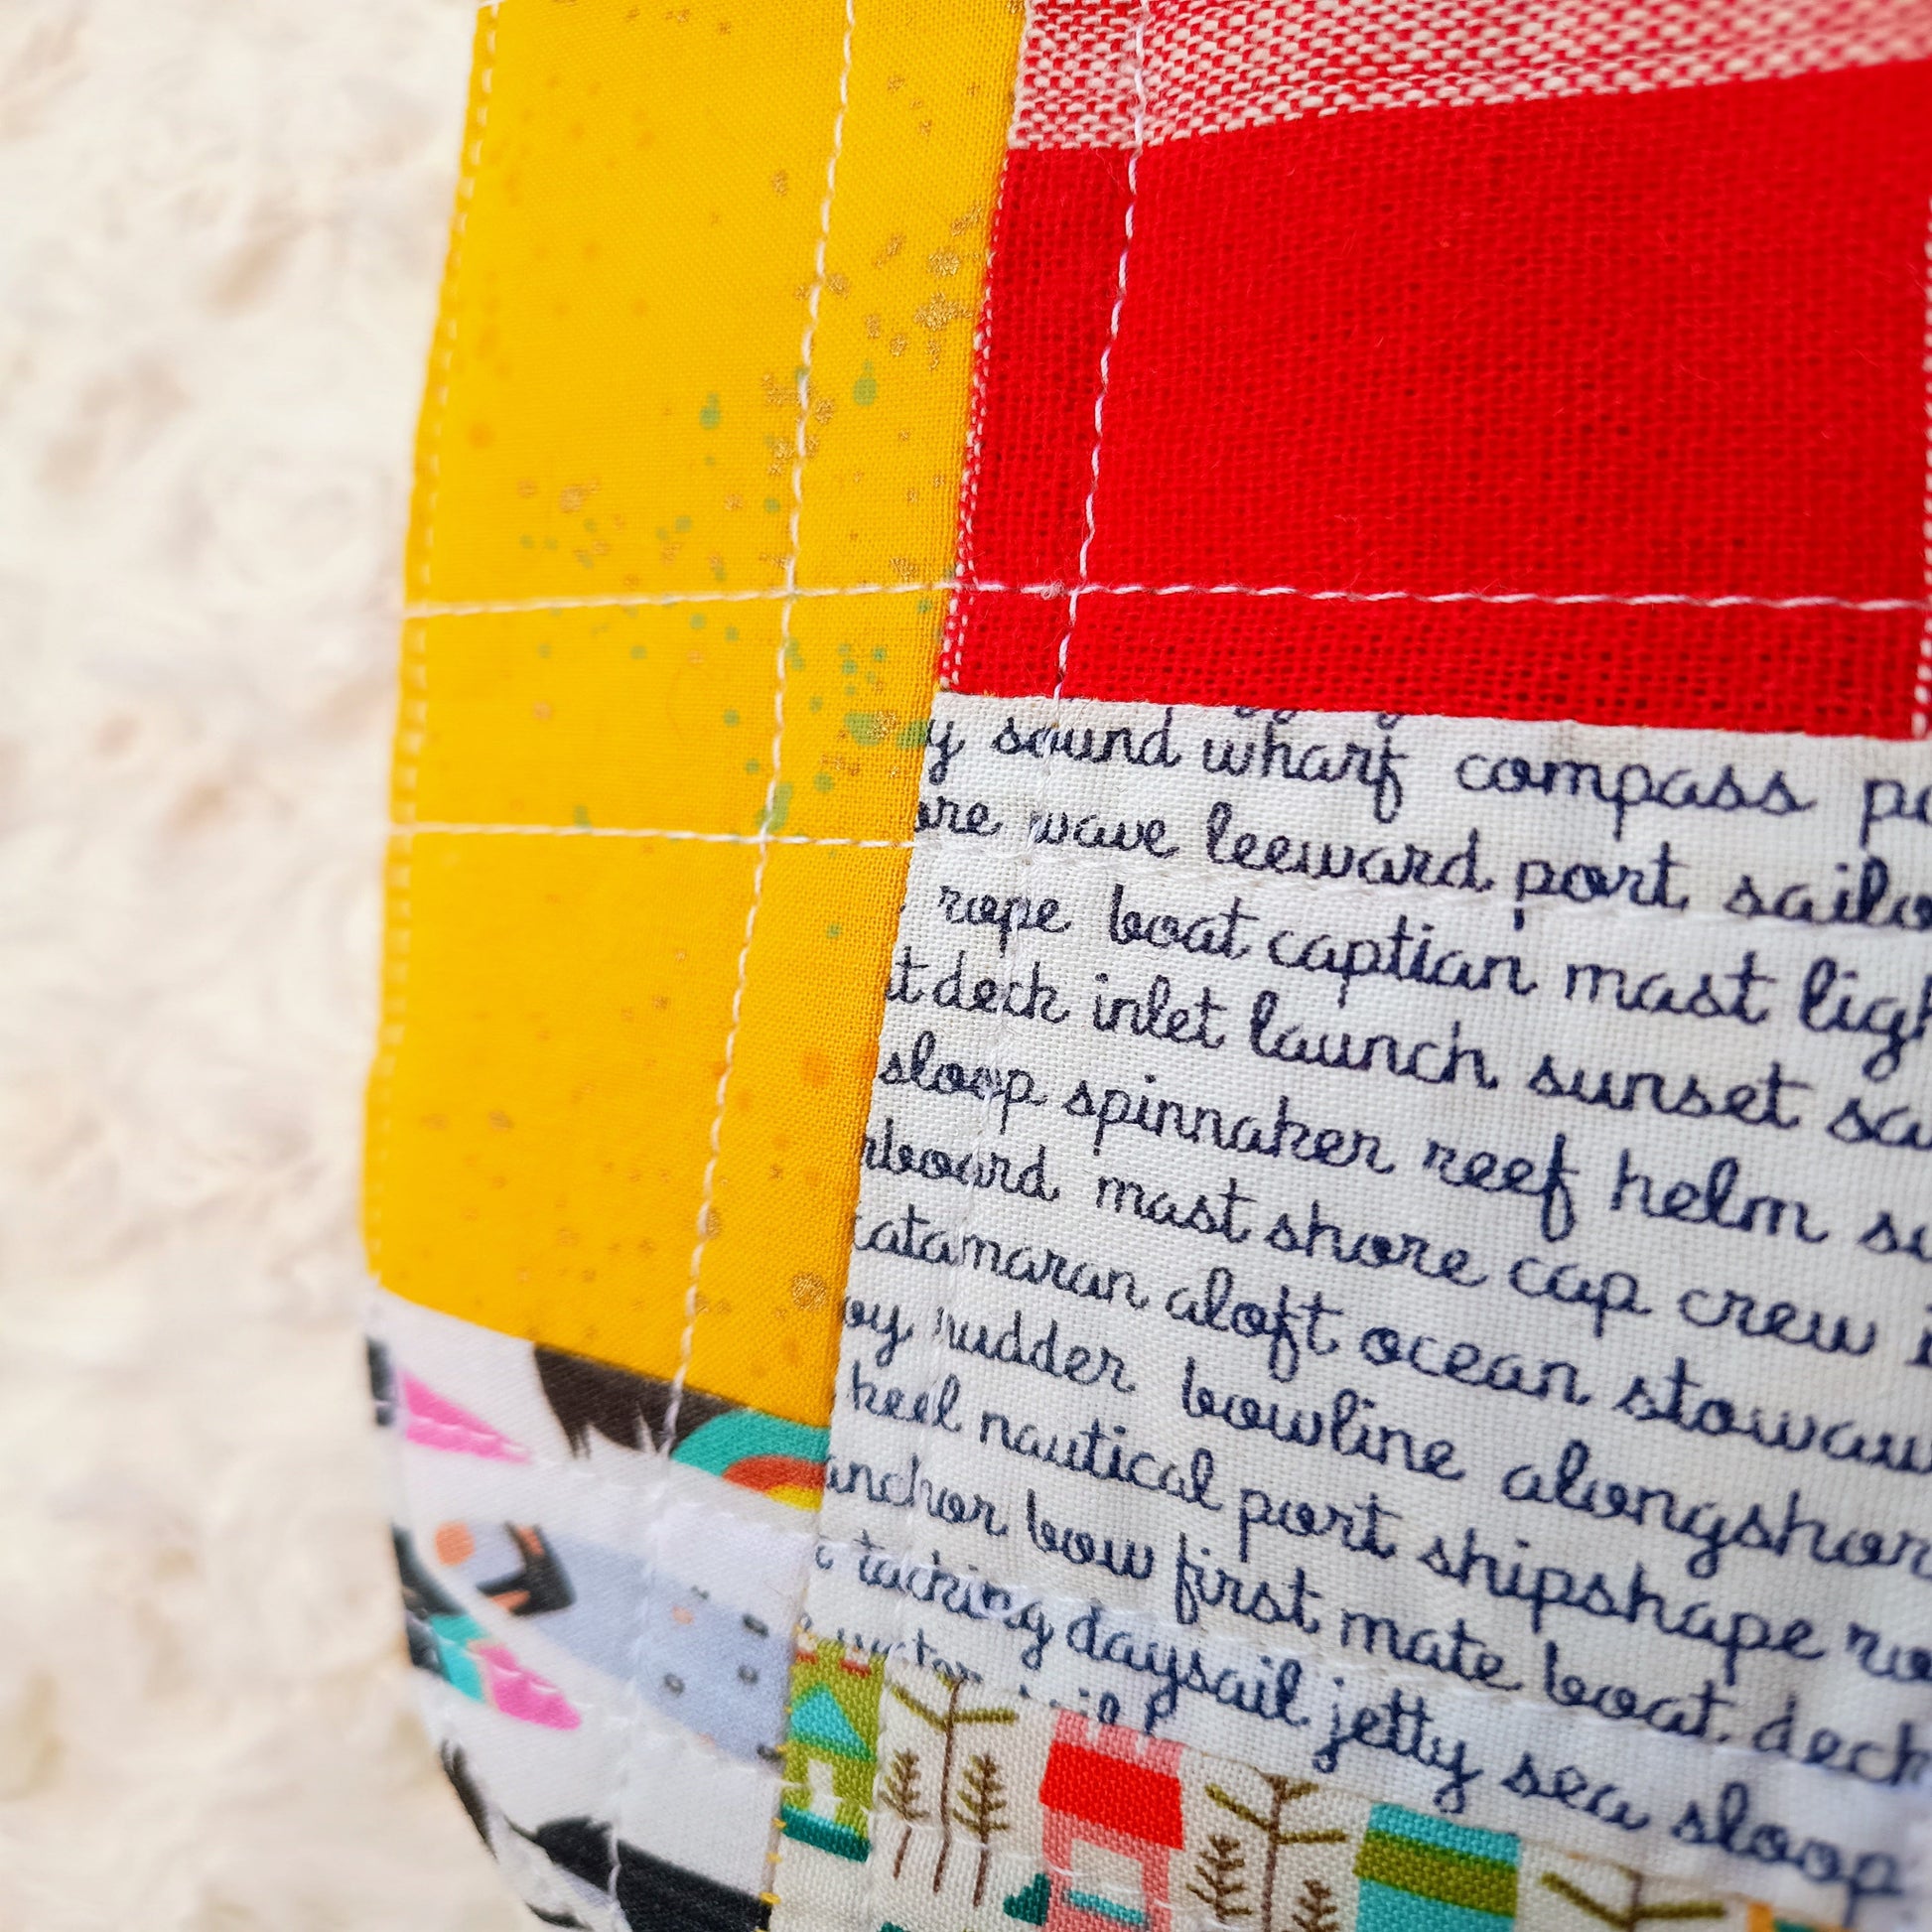 y sound wharf compass
ore wave leeward port sailo
rope boat captian mast ligh
t deck inlet launch sunset sa
sloop spinnaker reef helm
rboard mast shore cap crew
catamaran aloft ocean stowaw
oy rudder bowline alongshor
keel nautical port shipshape
anchor bow first mate boat deck
tacking daysail jetty sea sloop